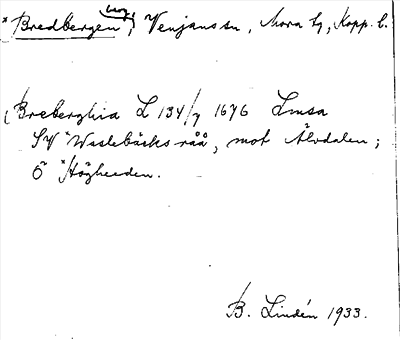 *Bredbergen, berg, Venjans sn, Mora tg, Kopp. l.
(Breberghia L 134/7 1676 Lmsa
SV *Waslebäcks råå, mot Älvdalen;
Ö *Högheeden.
B. Lindén 1933.